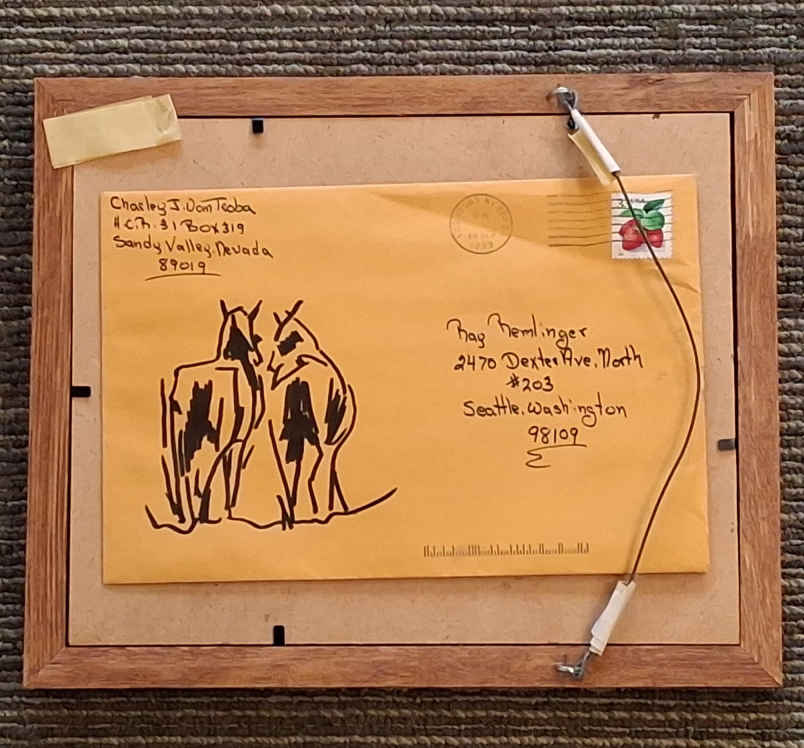 Charley J. Von Teaba
H.C.R. 31 Box 319
Sandy Valley, Nevada
89019
USA
Ray Remlinger
2470 Dexter Ave. North
#203
Seattle, Washington
98109